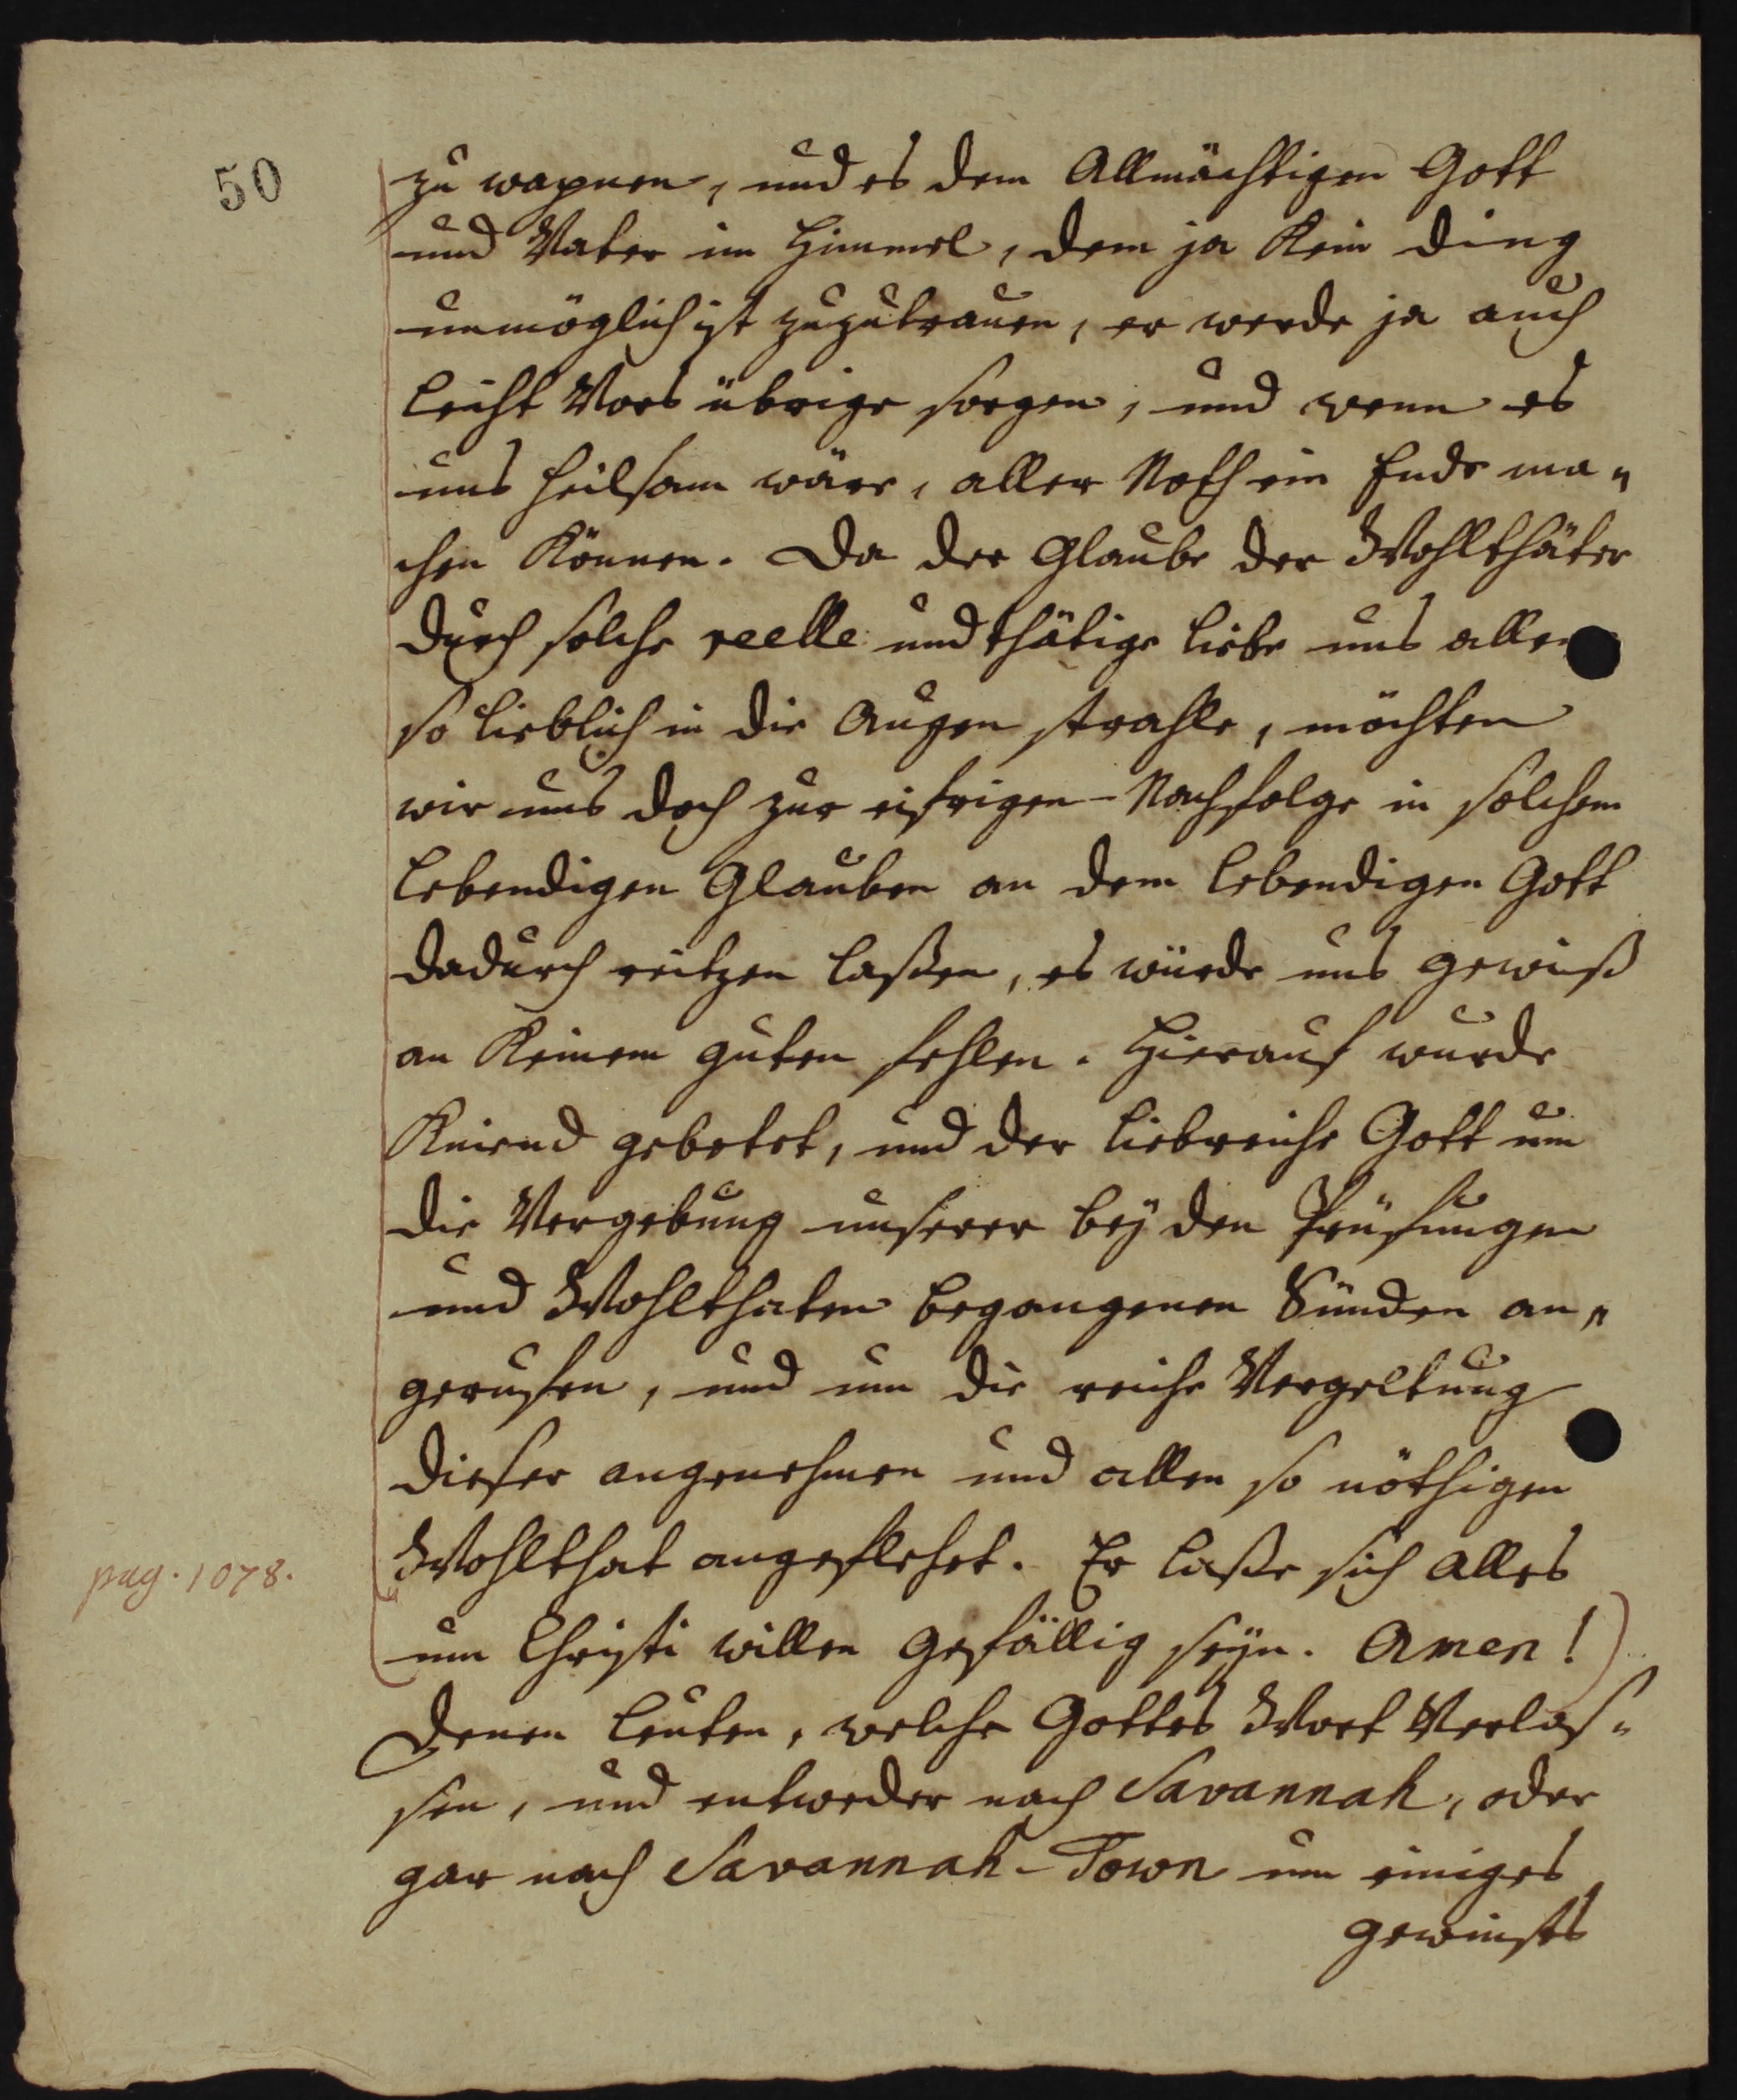 50
zu wapnen, und es dem Allmächtigen Gott
und Vater im Himmel, dem ja kein ding
unmöglich ist zuzutrauen, er werde ja auch
leicht Vors übrige sorgen, und wenn es
uns heilsam wäre, aller Noth ein Ende ma„
chen können. Da der Glaube der Wohlthäter
durch solche reelle und thätige liebe uns allen
so lieblich in die Augen strahle, möchten
wir uns doch zur eifrigen Nachfolge in solchem
lebendigen Glauben an dem lebendigen Gott
dadurch reitzen laßen, es würde uns gewiß
an keinem guten fehlen. Hierauf wurde
kniend gebetet, und der liebreiche Gott um
die Vergebung unserer bey den Prüfungen
und Wohlthaten begangenen Sünden an„
gerufen, und um die reiche Vergeltung
dieser angenehmen und allen so nöthigen
Wohlthat angeflehet. Er laße sich alles
pag. 1078.
um Christi willen gefällig seyn. Amen!)
Denen leuten, welche Gottes Wort Verlas„
sen, und entweder nach Savannah, oder
gar nach Savannah-Town um einiges
gewinsts